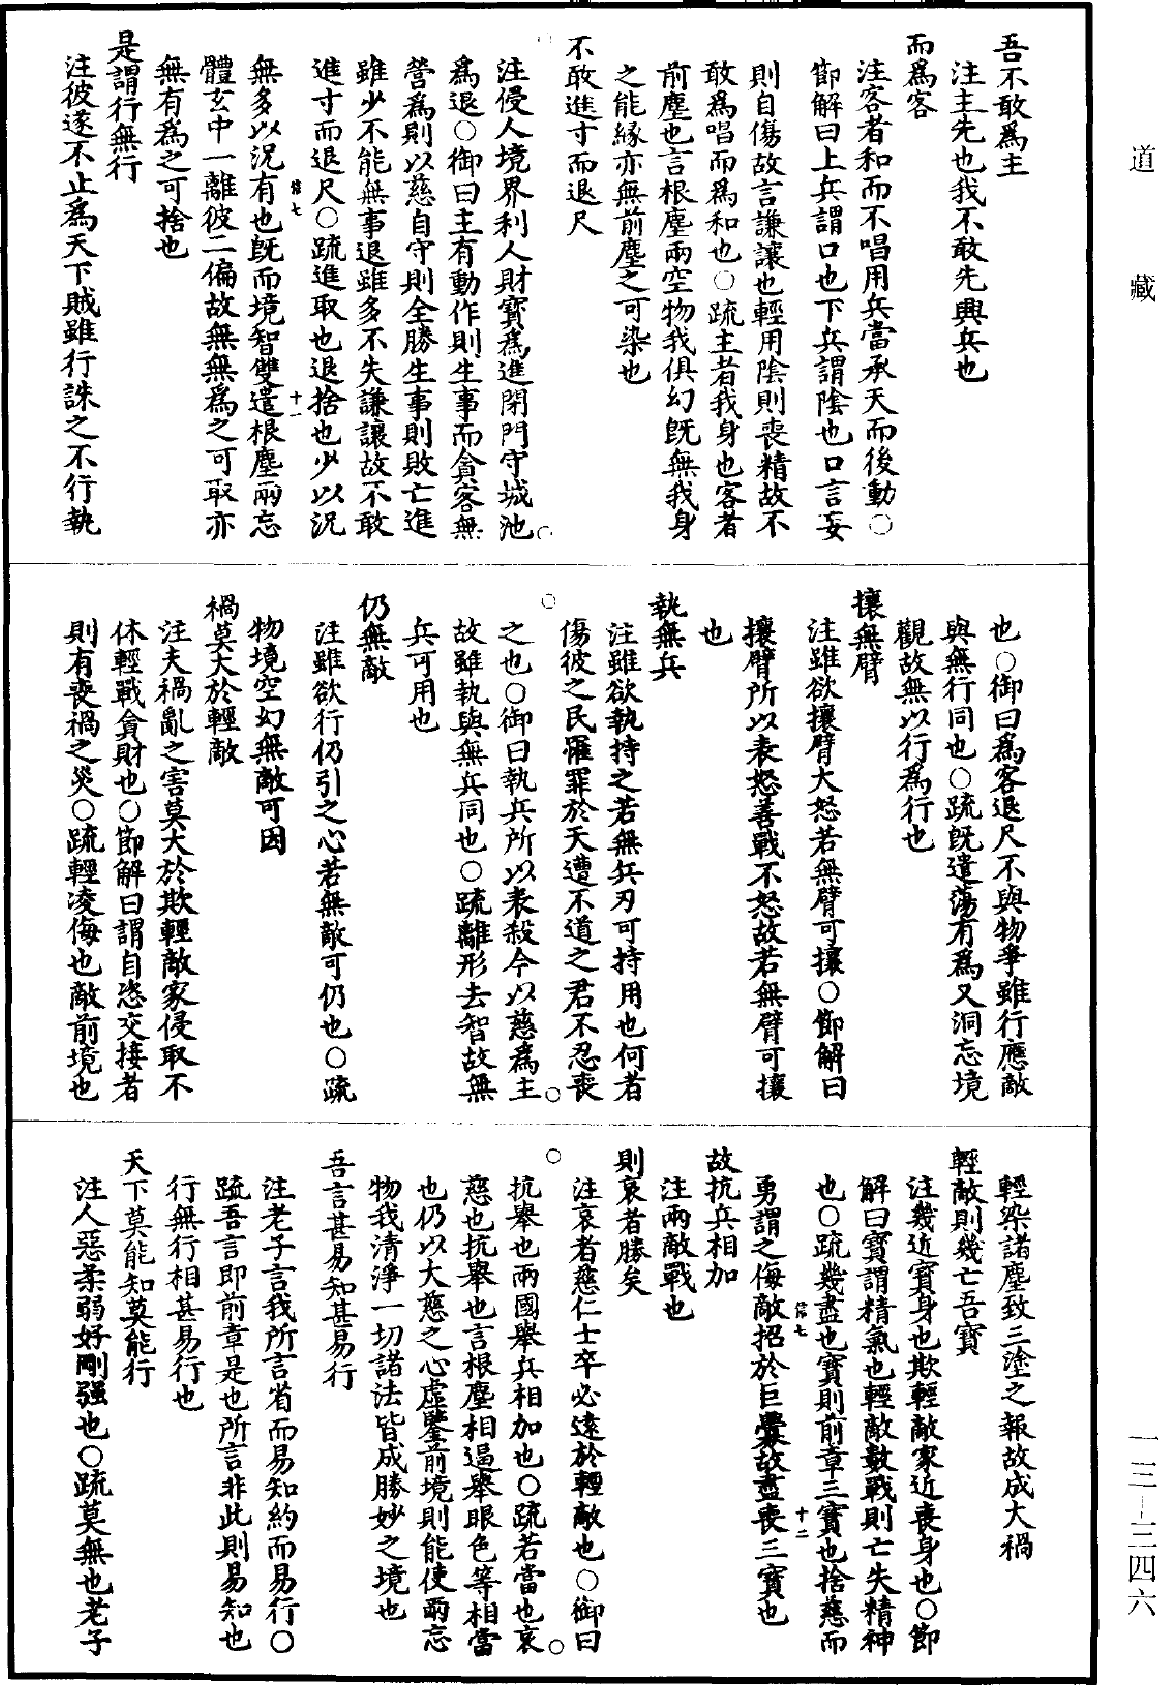 道藏
吾不敢爲主
注主先也我不敢先興兵也
而爲客
注客者和而不唱用兵當承天而後動○
節解曰上兵謂口也下兵謂陰也口言妄
則自傷故言謙讓也輕用陰則喪精故不
敢爲唱而爲和也○疏主者我身也客者
前塵也言根塵兩空物我俱幻旣無我身
之能緣亦無前塵之可染也
不敢進寸而退尺
注侵人境界利人財寶爲進閉門守城池
爲退○御曰主有動作則生事而貪客無
營爲則以慈自守則全勝生事則敗亡進
雖少不能無事退雖多不失謙讓故不敢
進寸而退尺○疏進取也退捨也少以況
無多以況有也旣而境智雙遣根塵兩忘
體玄中一離彼二偏故無無爲之可取亦
無有爲之可捨也
是謂行無行
注彼遂不止爲天下賊雖行誅之不行執
也○御曰爲客退尺不與物爭雖行應敵
與無行同也○疏旣遣蕩有爲又洞忘境
觀故無以行爲行也
攘無臂
注雖欲攘臂大怒若無臂可攘○節解曰
攘臂所以表怒善戰不怒故若無臂可攘
也
執無兵
注雖欲執持之若無兵刃可持用也何者
傷彼之民罹罪於天遭不道之君不忍喪
之也○御曰執兵所以表殺今以慈爲主
故雖執與無兵同也○疏離形去智故無
兵可用也
仍無敵
注雖欲行仍引之心若無敵可仍也○疏
物境空幻無敵可因
禍莫大於輕敵
注夫禍亂之害莫大於欺輕敵家侵取不
休輕戰貪財也○節解曰謂自恣交接者
則有喪禍之災○疏輕凌侮也敵前境也
輕染諸塵致三塗之報故成大禍
輕敵則幾亡吾寶
注幾近寶身也欺輕敵家近喪身也○節
解曰寶謂精氣也輕敵數戰則亡失精神
也○疏幾盡也寶則前章三寶也捨慈而
勇謂之侮敵招於巨釁故盡喪三寶也
故抗兵相加
注兩敵戰也
則哀者勝矣
注哀者慈仁士卒必遠於輕敵也○御曰
抗舉也兩國舉兵相加也○疏若當也哀
慈也抗舉也言根塵相逼舉眼色等相當
也仍以大慈之心虛鑒前境則能使兩忘
物我清淨一切諸法皆成勝妙之境也
吾言甚易知甚易行
注老子言我所言省而易知約而易行○
疏吾言即前章是也所言非此則易知也
行無行相甚易行也
天下莫能知莫能行
注人惡柔弱好剛强也○疏莫無也老子
一三-三四六